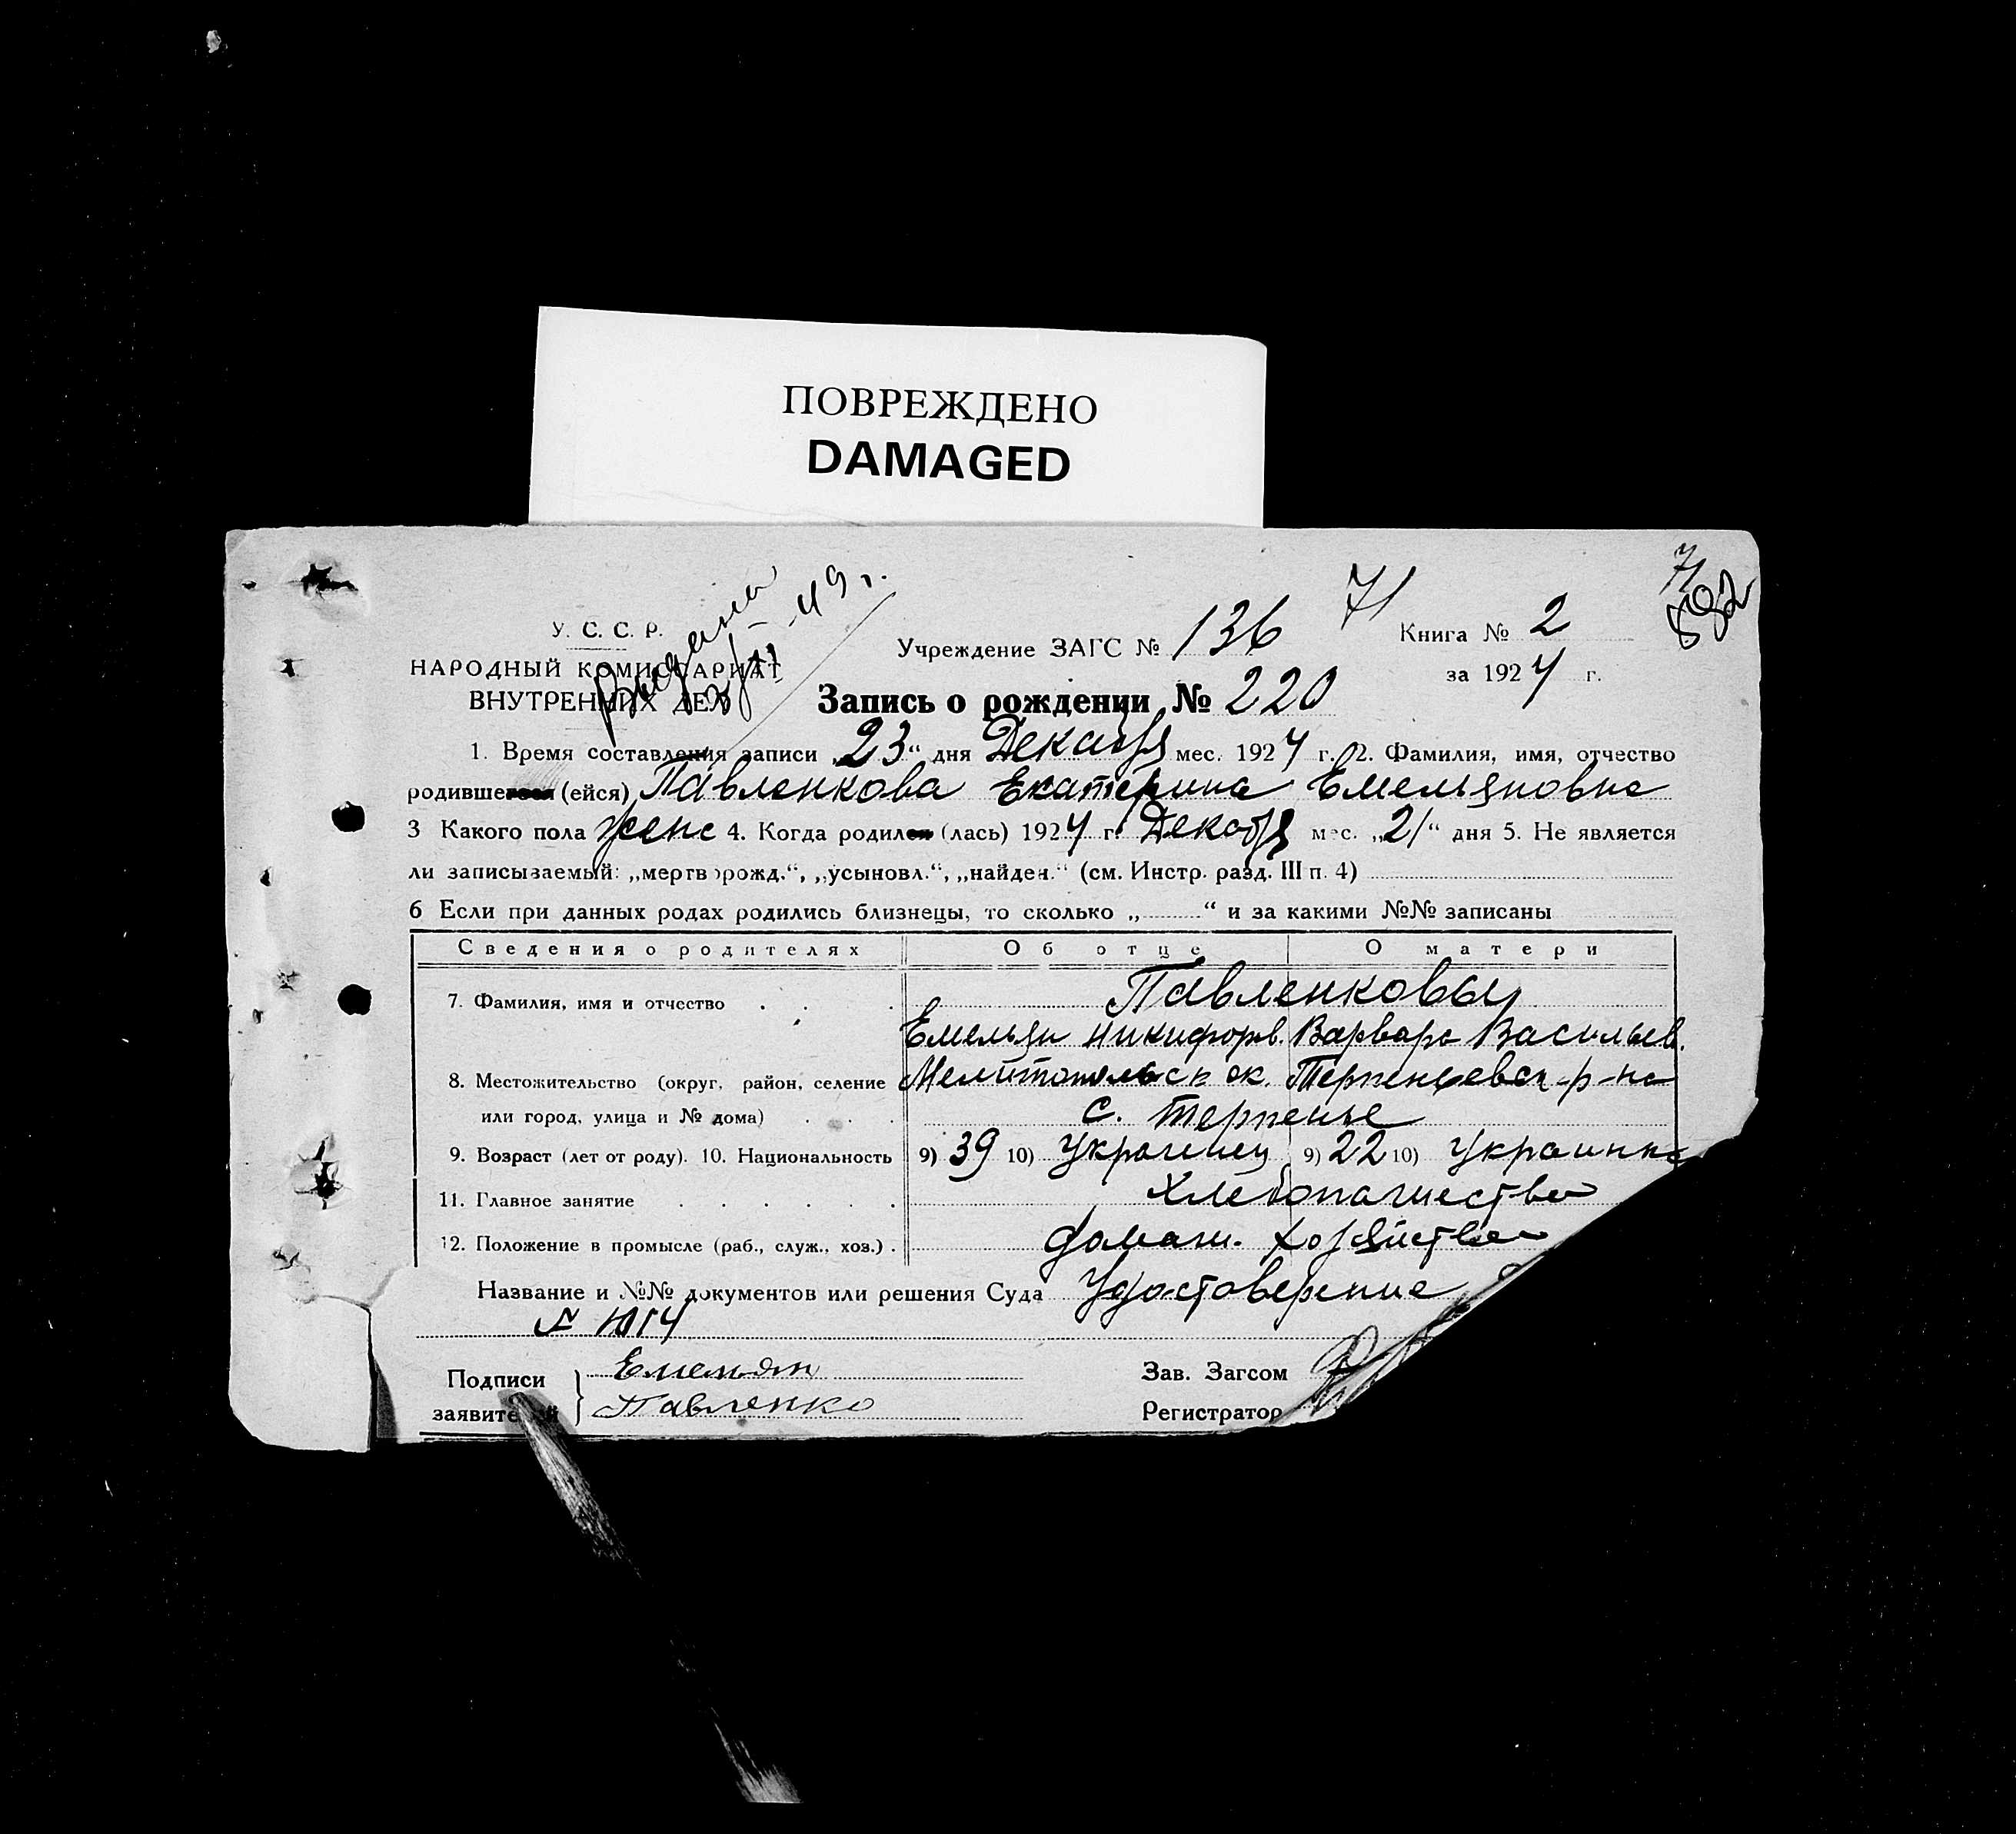 ПОВРЕЖДЕНО
DAMAGED
71
71
592
Выдана
-49 г.
У. С. С. Р.
НАРОДНЫЙ КОМИССАРИАТ
ВНУТРЕННИХ ДЕЛ
Учреждение ЗАГС № 136
Книга № 2
за 1924 г.
Запись о рождении № 220
1. Время составления записи „23“ дня Декабря мес. 1924 г. 2. Фамилия, имя, отчество
родившегося (ейся) Павленкова Екатерина Емельяновна
3 Какого пола женс 4. Когда родился (лась) 1924 г. Декабря мес. „21“ дня 5. Не является
ли записываемый: „мертворожд.“, „усыновл.“, „найден.“ (см. Инстр. разд. III п. 4)
6 Если при данных родах родились близнецы, то сколько „ “ и за какими №№ записаны
Сведения о родителях Об отце О матери
7. Фамилия, имя и отчество Павленковы
Емельян Никифоров. Варвара Васильев.
8. Местожительство (округ, район, селение Мелитопольск ок. Терпеньевск р-на
или город, улица и № дома) с. Терпенье
9. Возраст (лет от роду). 10. Национальность 9) 39 10) Украинец 9) 22 10) Украинка
11. Главное занятие Хлебопашество
12. Положение в промысле (раб., служ., хоз.) домаш. хозяйство
Название и №№ документов или решения Суда Удостоверение
№ 1014
Подписи Емельян
заявителей Павленко
Зав. Загсом
Регистратор